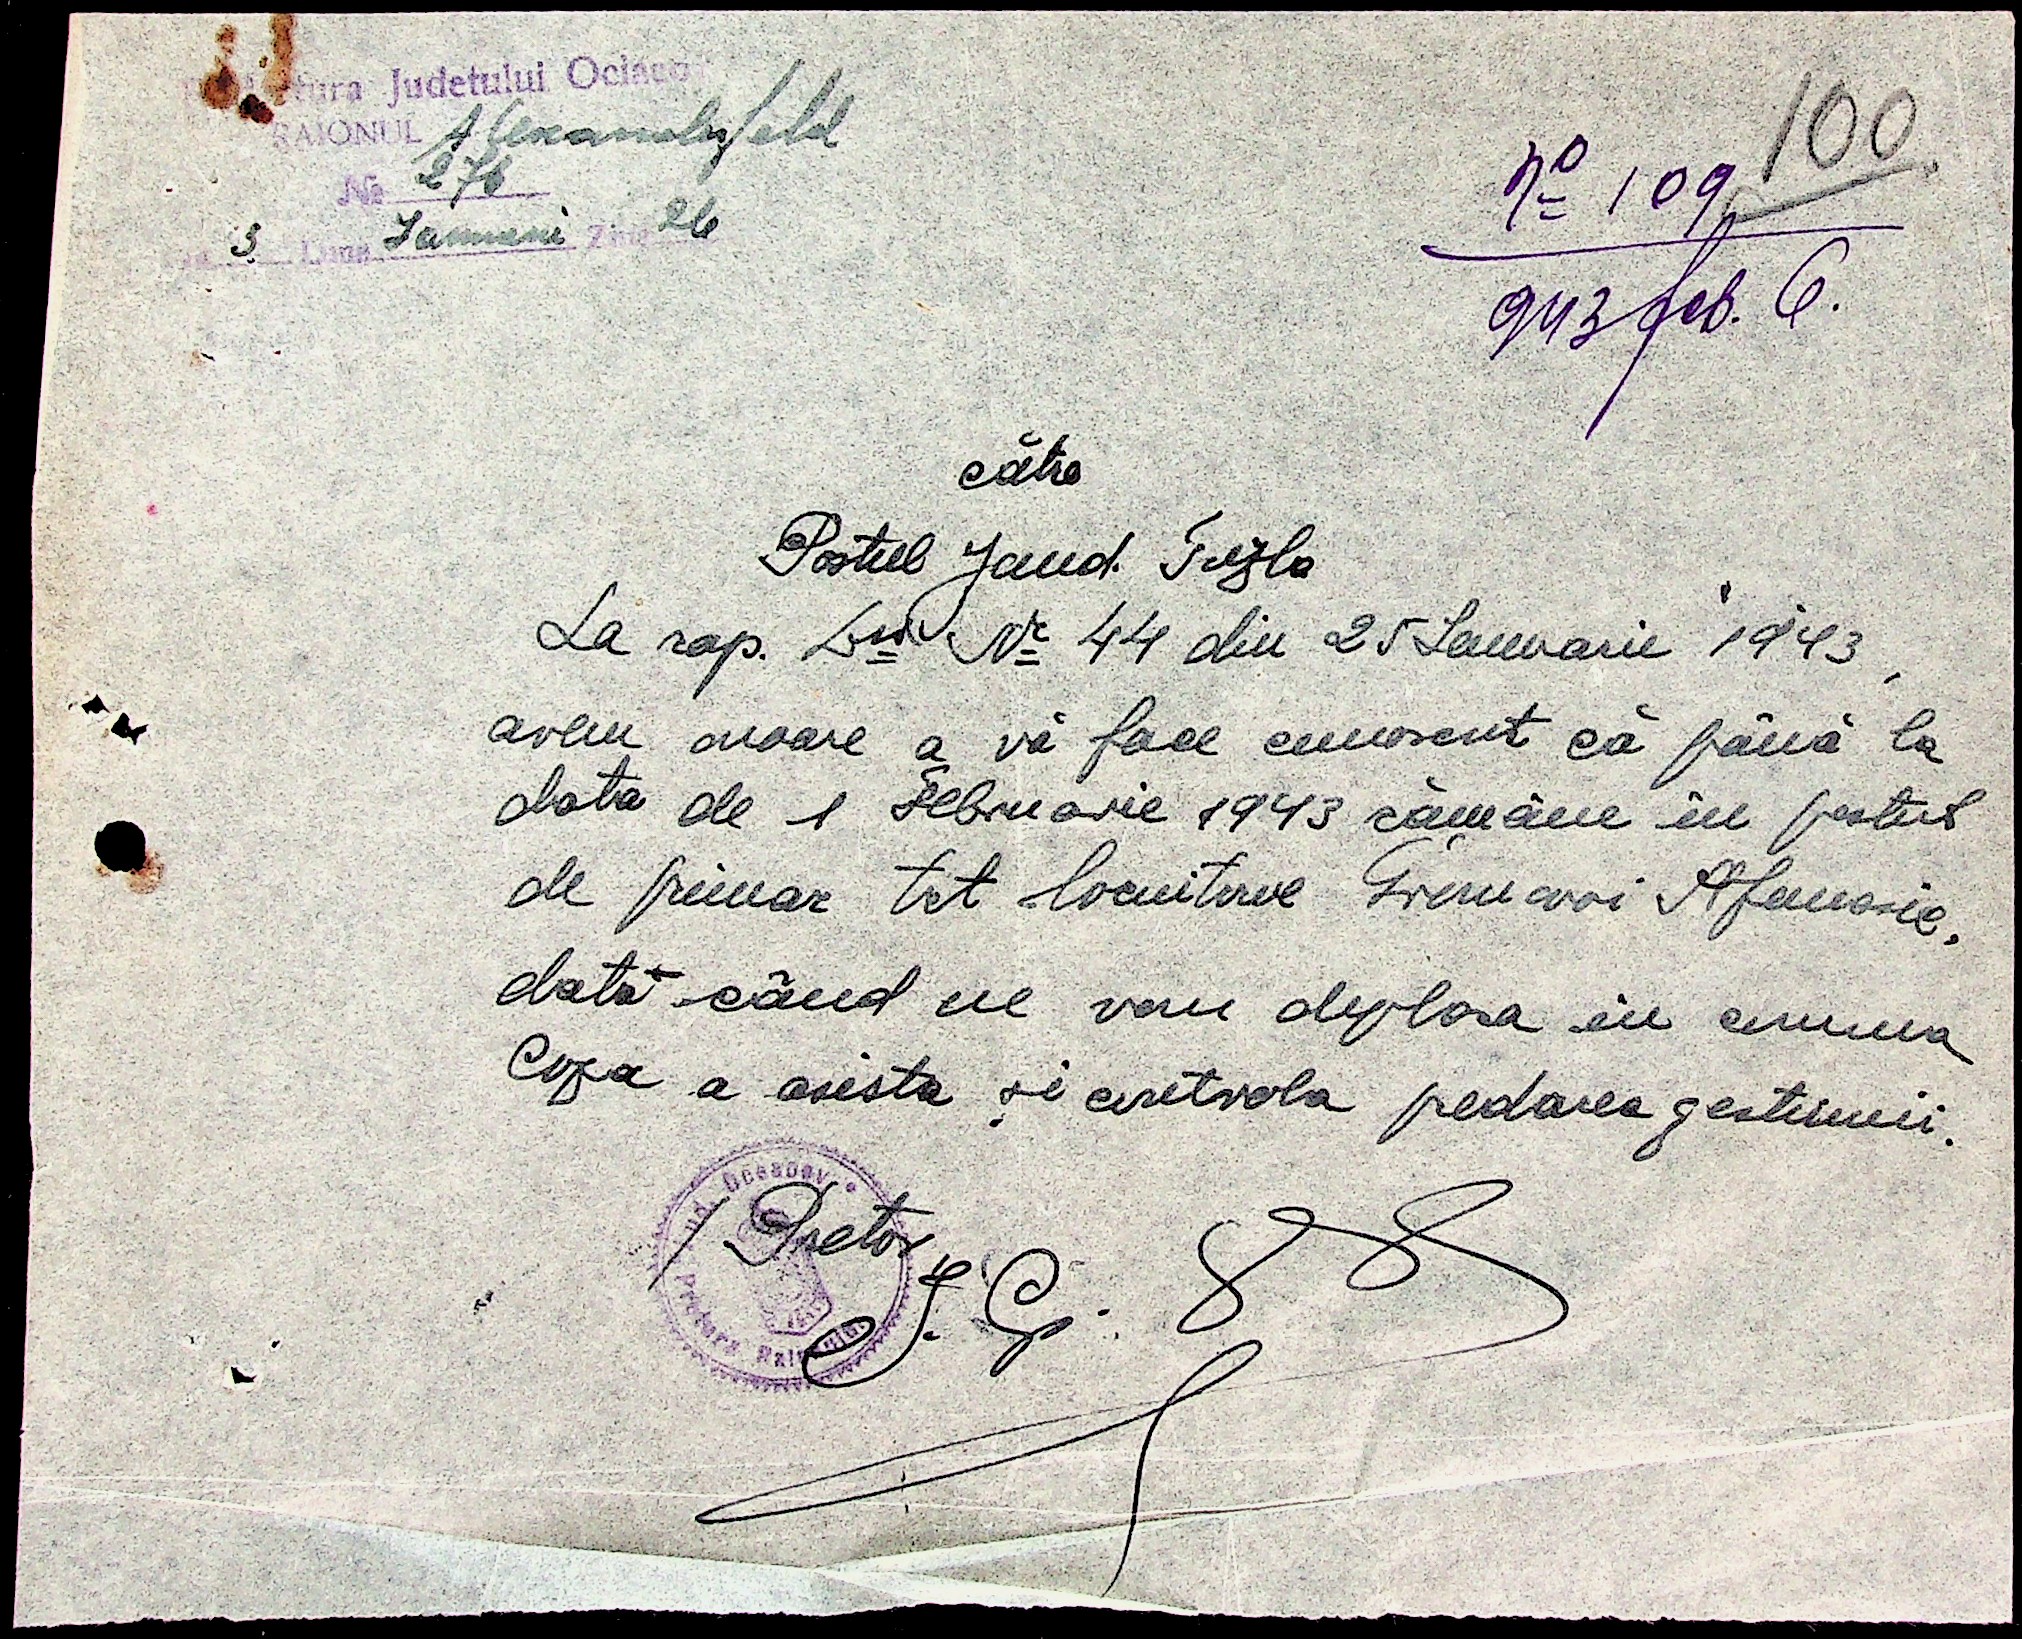 Prefectura Judetului Ociacov
RAIONUL Alexanderfeld
№ 276
3 Luna Ianuarie Ziua 26
100
No 109
943 feb. 6.
către
Postul Jand.
La rap. Dvs Nr 44 din 25 Ianuarie 1943,
avem onoare a vă face cunoscut că până la
data de 1 Februarie 1943 rămâne în postul
de primar tot locuitorul Afanasie,
dată când ne vom deplasa în comuna
a asista și controla predarea gestiunii.
Jud. Oceacov
Pretura Raionului
/ Pretor